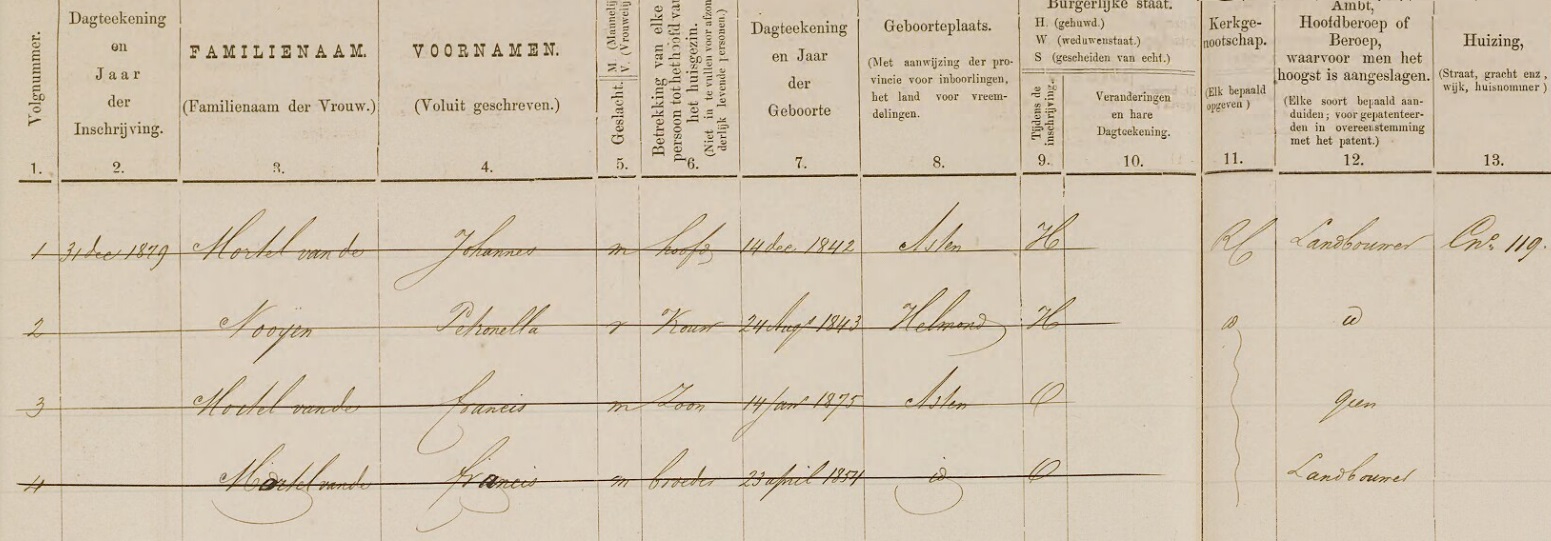 Volgnummer.
1.
Dagteekening
en
Jaar
der
Inschrijving.
2.
FAMILIENAAM.
(Familienaam der Vrouw.)
3.
VOORNAMEN.
(Voluit geschreven.)
4.
Geslacht. M (Mannelijk
V. (Vrouwelij
5.
Betrekking van elke
persoon tot het hoofd van
het huisgezin.
(Niet in te vullen voor afzon-
derlijk levende personen.)
6.
Dagteekening
en Jaar
der
Geboorte
7.
Geboorteplaats.
(Met aanwijzing der pro-
vincie voor inboorlingen,
het land voor vreem-
delingen.
8.
Burgerlijke staat.
H. (gehuwd.)
W (weduwenstaat.)
S (gescheiden van echt.)
Tijdens de
inschrijving.
9.
Veranderingen
en hare
Dagteekening.
10.
Kerkge-
nootschap.
(Elk bepaald
opgeven)
11.
Ambt,
Hoofdberoep of
Beroep,
waarvoor men het
hoogst is aangeslagen.
(Elke soort bepaald aan-
duiden; voor gepatenteer-
den in overeenstemming
met het patent.)
12.
Huizing,
(Straat, gracht enz,
wijk, huisnommer)
13.
1 31 dec 1879 Mortel van de Johannes m hoofd 14 dec 1842 Asten H RC Landbouwer C no 119.
2 Nooyen Petronella v Vrouw 24 Augs 1843 Helmond H id id
3 Mortel van de Francis m Zoon 14 jan 1875 Asten O geen
4 Mortel van de Francis m broeder 23 april 1854 id O Landbouwer